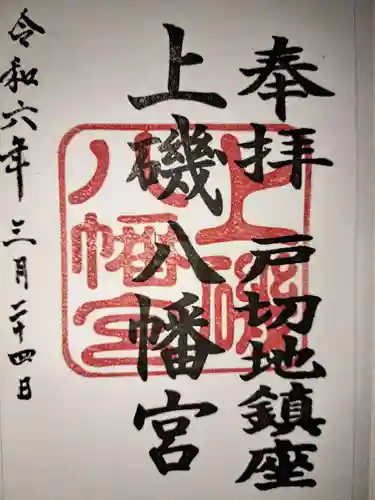 奉拝 戸切地鎮座
上磯八幡宮
上磯
八幡宮
令和六年 三月二十四日